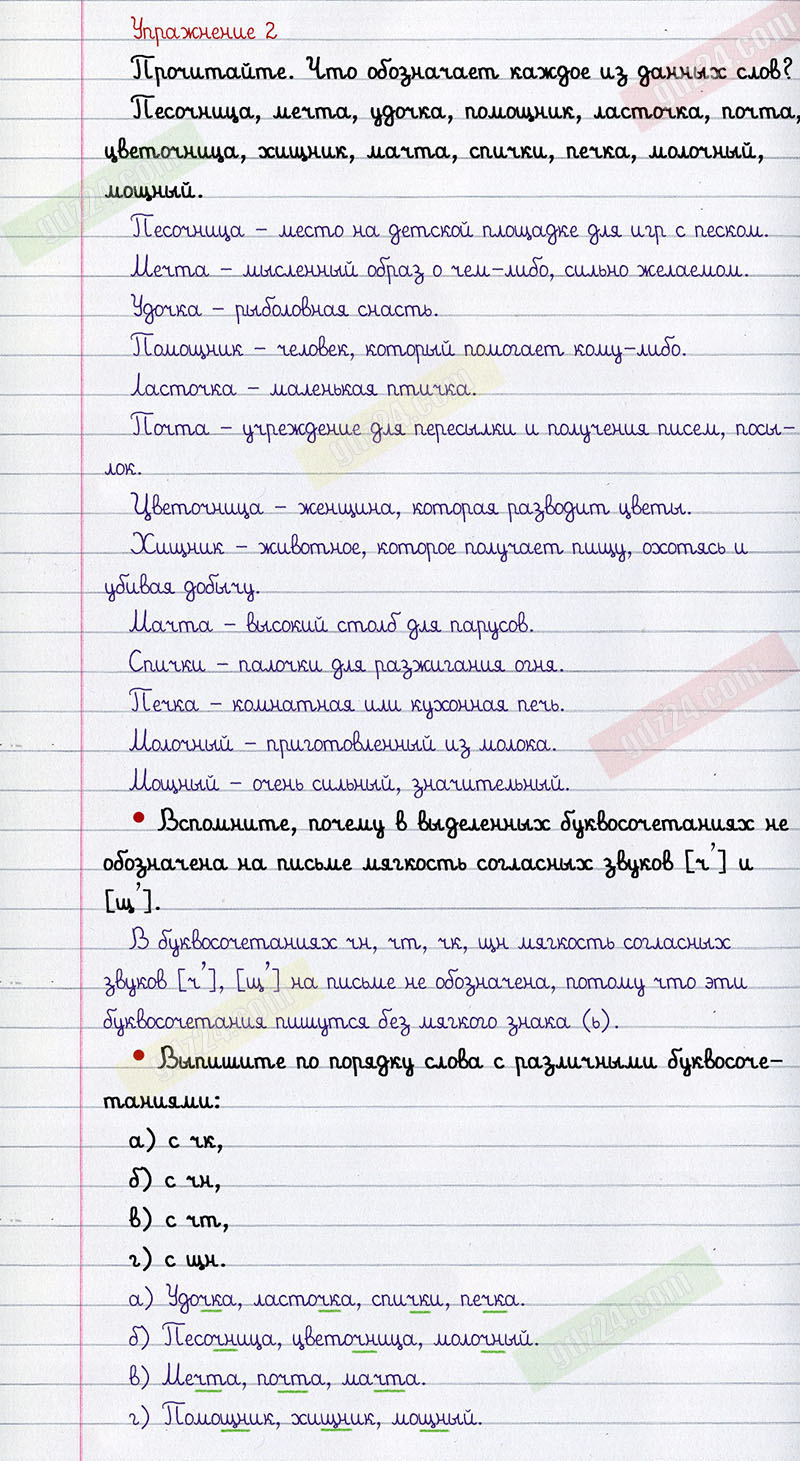 Упражнение 2
Прочитайте. Что обозначает каждое из данных слов?
Песочница, мечта, удочка, помощник, ласточка, почта,
цветочница, хищник, мачта, спички, печка, молочный,
мощный.
Песочница – место на детской площадке для игр с песком.
Мечта – мысленный образ о чем-либо, сильно желаемом.
Удочка – рыболовная снасть.
Помощник – человек, который помогает кому-либо.
Ласточка – маленькая птичка.
Почта – учреждение для пересылки и получения писем, посы-
лок.
Цветочница – женщина, которая разводит цветы.
Хищник – животное, которое получает пищу, охотясь и
убивая добычу.
Мачта – высокий столб для парусов.
Спички – палочки для разжигания огня.
Печка – комнатная или кухонная печь.
Молочный – приготовленный из молока.
Мощный – очень сильный, значительный.
• Вспомните, почему в выделенных буквосочетаниях не
обозначена на письме мягкость согласных звуков [ч'] и
[щ'].
В буквосочетаниях чн, чт, чк, щн мягкость согласных
звуков [ч'], [щ'] на письме не обозначена, потому что эти
буквосочетания пишутся без мягкого знака (ь).
• Выпишите по порядку слова с различными буквосоче-
таниями:
а) с чк,
б) с чн,
в) с чт,
г) с щн.
а) Удочка, ласточка, спички, печка.
б) Песочница, цветочница, молочный.
в) Мечта, почта, мачта.
г) Помощник, хищник, мощный.
gdz24.com
gdz24.com
gdz24.com
gdz24.com
gdz24.com
gdz24.com